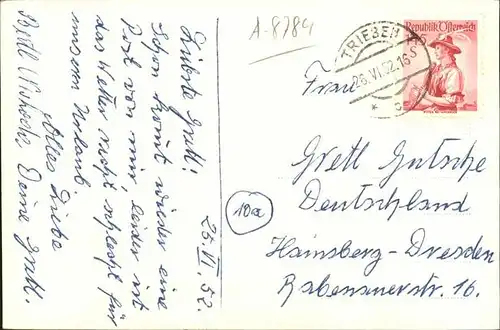 A-8784
25.VI.52.
Liebste Gretl!
Schon kommt wieder eine
Post von mir, leider ist
das Wetter recht schlecht für
unsern Urlaub.
Alles Liebe
Deine Gretl.
TRIEBEN
26.VI.52.16
Republik Österreich
Frau
Gretl Gutsche
Deutschland
10a
Hainsberg-Dresden
Rabenauerstr. 16.